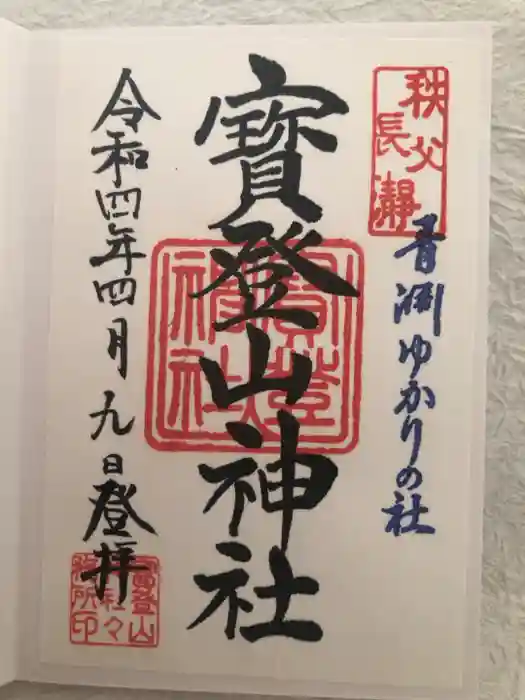 秩父
長瀞
青淵ゆかりの社
寳登山神社
寳登
山神
社
令和四年四月九日登拝
寳登山
神社々
務所印